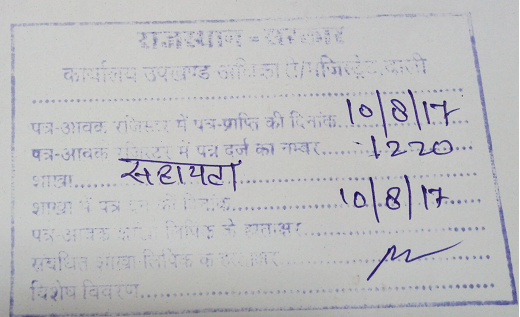 राजस्थान - सरकार
कार्यालय उपखण्ड अधिकारी/मजिस्ट्रेट, बाली
पत्र-आवक रजिस्टर में पत्र-प्राप्ति की दिनांक 10/8/17
पत्र-आवक रजिस्टर में पत्र दर्ज का नम्बर 1220
शाखा सहायता
शाखा में पत्र दिनांक 10/8/17
पत्र-आवक शाखा लिपिक के हस्ताक्षर
संबंधित शाखा लिपिक के हस्ताक्षर
विशेष विवरण